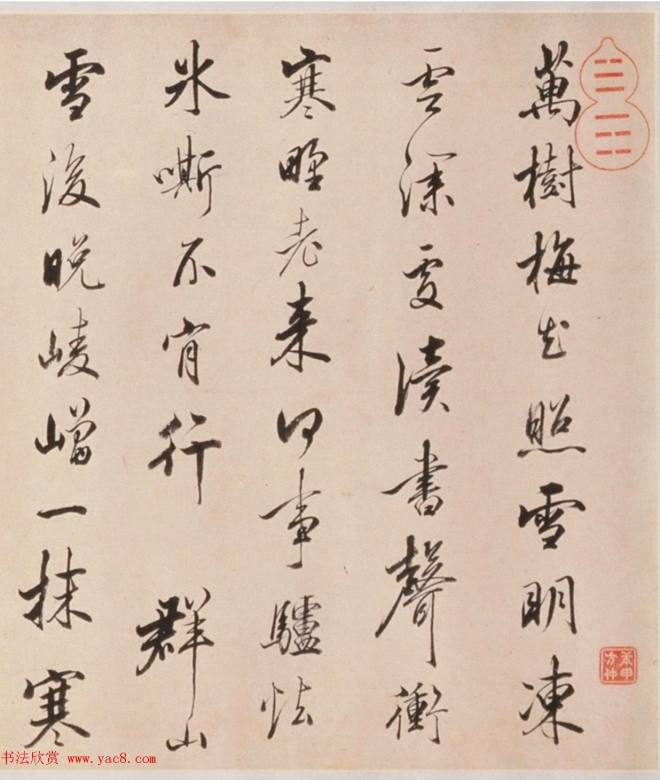 萬樹梅花照雪明凍
雲深處讀書聲衝
寒野老来何事驢怯
氷嘶不肯行 群山
雪後晚崚嶒一抹寒
书法欣赏 www.yac8.com